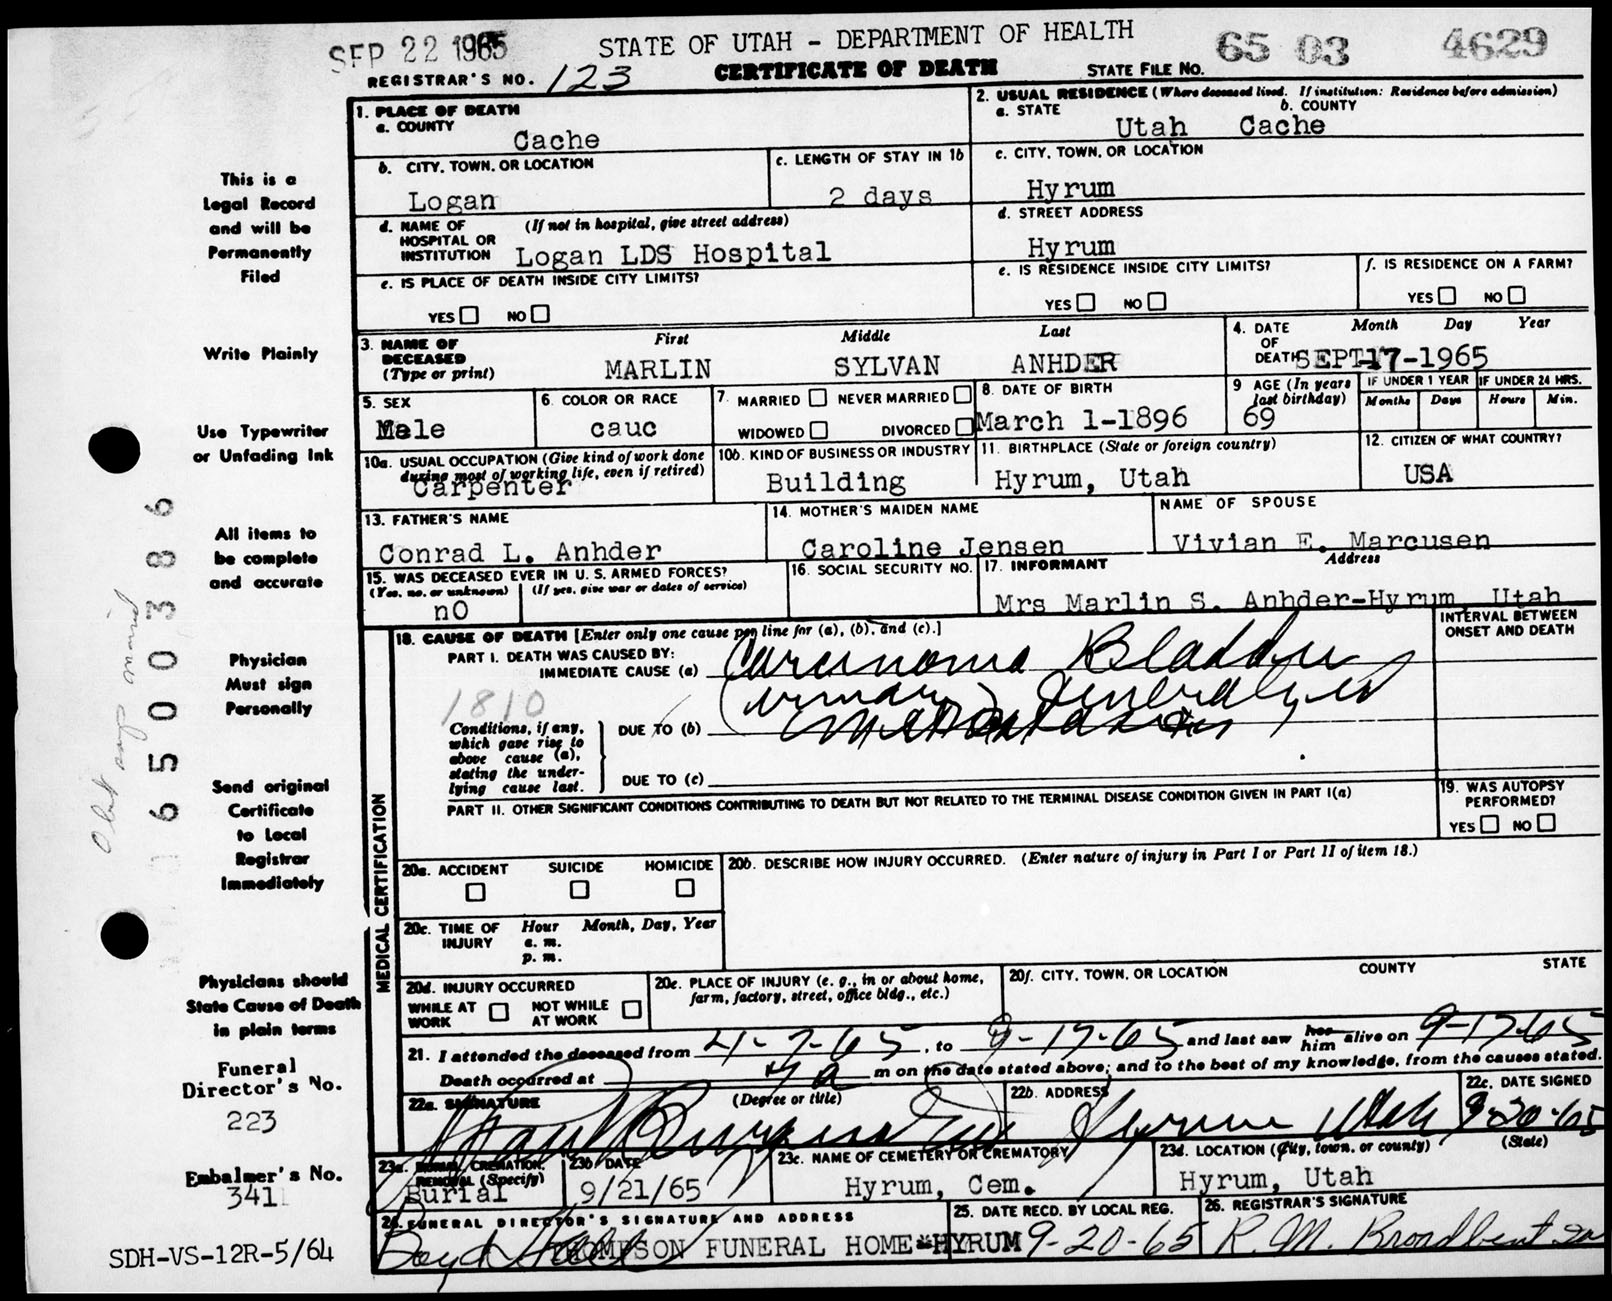 SEP 22 1965
STATE OF UTAH - DEPARTMENT OF HEALTH
65 03 4629
REGISTRAR'S NO. 123
CERTIFICATE OF DEATH
STATE FILE NO.
1. PLACE OF DEATH
a. COUNTY
Cache
2. USUAL RESIDENCE (Where deceased lived. If institution: Residence before admission)
a. STATE
b. COUNTY
Utah Cache
b. CITY, TOWN, OR LOCATION
Logan
c. LENGTH OF STAY IN 1b
2 days
c. CITY, TOWN, OR LOCATION
Hyrum
d. NAME OF HOSPITAL OR INSTITUTION
(If not in hospital, give street address)
Logan LDS Hospital
d. STREET ADDRESS
Hyrum
e. IS PLACE OF DEATH INSIDE CITY LIMITS?
YES NO
e. IS RESIDENCE INSIDE CITY LIMITS?
YES NO
f. IS RESIDENCE ON A FARM?
YES NO
3. NAME OF DECEASED (Type or print)
First Middle Last
MARLIN SYLVAN ANHDER
4. DATE OF DEATH
Month Day Year
SEPT-17-1965
5. SEX
Male
6. COLOR OR RACE
cauc
7. MARRIED NEVER MARRIED
WIDOWED DIVORCED
8. DATE OF BIRTH
March 1-1896
9 AGE (In years last birthday)
69
IF UNDER 1 YEAR
Months Days
IF UNDER 24 HRS.
Hours Min.
10a. USUAL OCCUPATION (Give kind of work done during most of working life, even if retired)
Carpenter
10b. KIND OF BUSINESS OR INDUSTRY
Building
11. BIRTHPLACE (State or foreign country)
Hyrum, Utah
12. CITIZEN OF WHAT COUNTRY?
USA
13. FATHER'S NAME
Conrad L. Anhder
14. MOTHER'S MAIDEN NAME
Caroline Jensen
NAME OF SPOUSE
Vivian E. Marcusen
15. WAS DECEASED EVER IN U. S. ARMED FORCES?
(Yes, no, or unknown) (If yes, give war or dates of service)
nO
16. SOCIAL SECURITY NO.
17. INFORMANT Address
Mrs Marlin S. Anhder-Hyrum, Utah
18. CAUSE OF DEATH [Enter only one cause per line for (a), (b), and (c).]
INTERVAL BETWEEN ONSET AND DEATH
PART I. DEATH WAS CAUSED BY:
IMMEDIATE CAUSE (a) Carcinoma Bladder
(urinary) Generalized
1810
Conditions, if any, which gave rise to above cause (a), stating the underlying cause last.
DUE TO (b) Metastases
DUE TO (c)
PART II. OTHER SIGNIFICANT CONDITIONS CONTRIBUTING TO DEATH BUT NOT RELATED TO THE TERMINAL DISEASE CONDITION GIVEN IN PART I(a)
19. WAS AUTOPSY PERFORMED?
YES NO
MEDICAL CERTIFICATION
20a. ACCIDENT SUICIDE HOMICIDE
20b. DESCRIBE HOW INJURY OCCURRED. (Enter nature of injury in Part I or Part II of item 18.)
20c. TIME OF INJURY
Hour Month, Day, Year
a. m.
p. m.
20d. INJURY OCCURRED
WHILE AT WORK NOT WHILE AT WORK
20e. PLACE OF INJURY (e. g., in or about home, farm, factory, street, office bldg., etc.)
20f. CITY, TOWN, OR LOCATION COUNTY STATE
21. I attended the deceased from 4-7-65, to 9-17-65 and last saw her him alive on 9-17-65
Death occurred at 4 a m on the date stated above; and to the best of my knowledge, from the causes stated.
22a. SIGNATURE (Degree or title)
22b. ADDRESS
Hyrum Utah
22c. DATE SIGNED
9-20-65
23a. BURIAL, CREMATION, REMOVAL (Specify)
Burial
23b. DATE
9/21/65
23c. NAME OF CEMETERY OR CREMATORY
Hyrum, Cem.
23d. LOCATION (City, town, or county) (State)
Hyrum, Utah
24. FUNERAL DIRECTOR'S SIGNATURE AND ADDRESS
THOMPSON FUNERAL HOME-HYRUM
25. DATE RECD. BY LOCAL REG.
9-20-65
26. REGISTRAR'S SIGNATURE
R. M. Broadbent
This is a
Legal Record
and will be
Permanently
Filed
Write Plainly
Use Typewriter
or Unfading Ink
All items to
be complete
and accurate
Physician
Must sign
Personally
Send original
Certificate
to Local
Registrar
Immediately
Physicians should
State Cause of Death
in plain terms
Funeral
Director's No.
223
Embalmer's No.
341
SDH-VS-12R-5/64
6500386
Obit says married